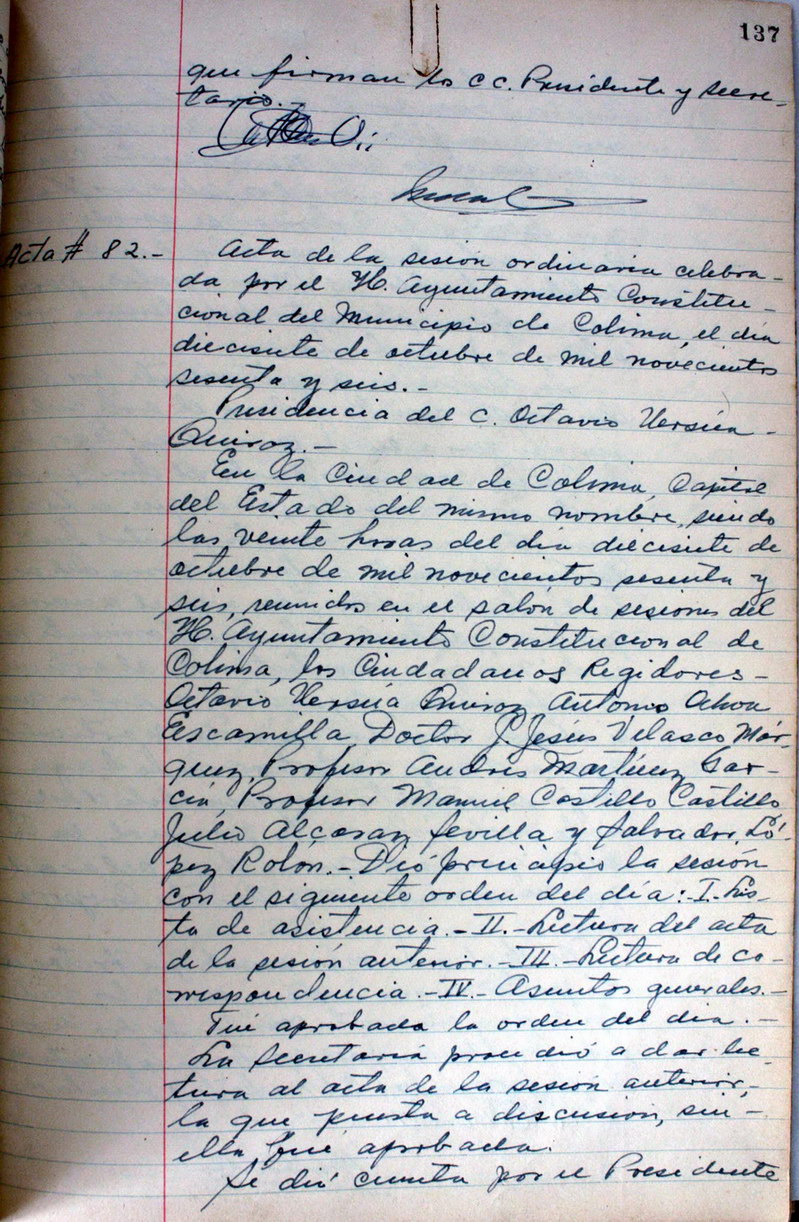 137
que firman los C C. Presidente y Secre-
tario.-
Acta # 82.-
Acta de la sesión ordinaria celebra-
da por el H. Ayuntamiento Constitu-
cional del Municipio de Colima, el día
diecisiete de octubre de mil novecientos
sesenta y seis.-
Presidencia del C. Octavio Ursúa
Quiroz.-
En la Ciudad de Colima, Capital
del Estado del mismo nombre, siendo
las veinte horas del día diecisiete de
octubre de mil novecientos sesenta y
seis, reunidos en el salón de sesiones del
H. Ayuntamiento Constitucional de
Colima, los Ciudadanos Regidores-
Octavio Ursúa Quiroz, Antonio Ochoa
Escamilla, Doctor J. Jesús Velasco Már-
quez, Profesor Andrés Martínez Gar-
cía, Profesor Manuel Castillo Castillo
Julio Alcaraz Sevilla y Salvador Ló-
pez Rolón.- Dió principio la sesión
con el siguiente orden del día: I.- Lis-
ta de asistencia.- II.- Lectura del acta
de la sesión anterior.- III.- Lectura de co-
rrespondencia.- IV.- Asuntos generales.-
Fué aprobada la orden del día.-
La Secretaría procedió a dar lec-
tura al acta de la sesión anterior,
la que puesta a discusión, sin-
ella fué aprobada.
Se dió cuenta por el Presidente